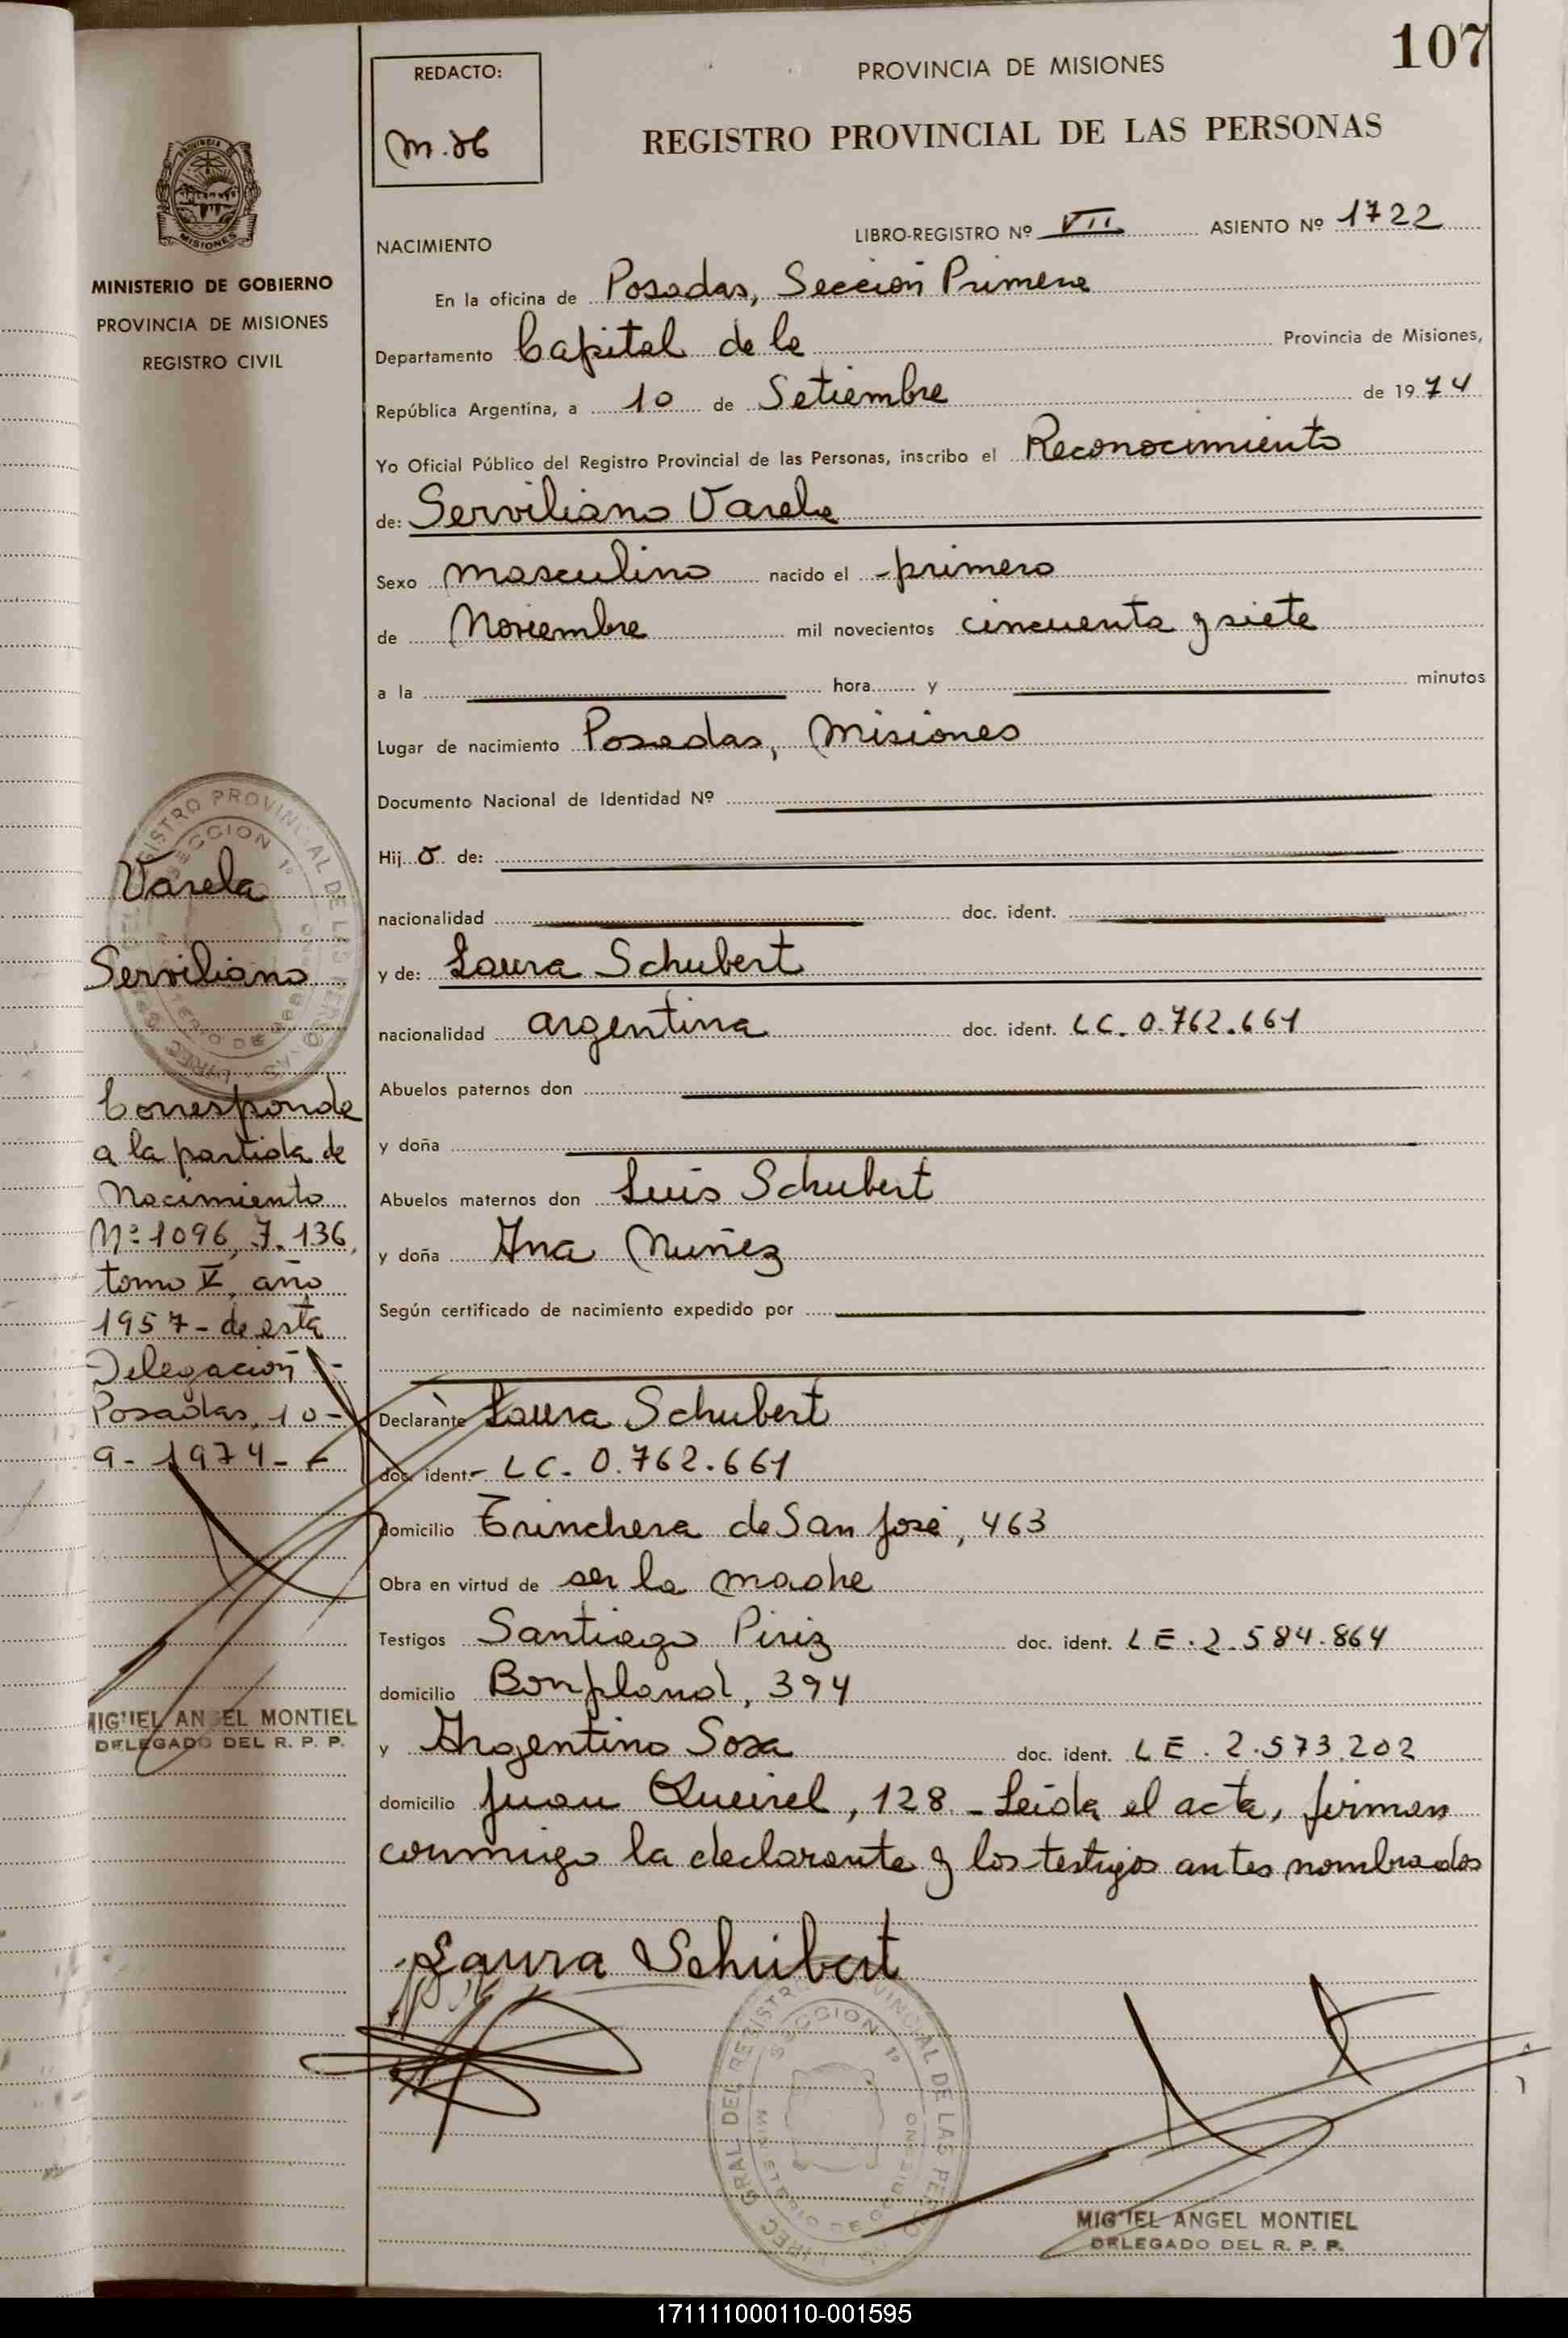 107
REDACTO:
PROVINCIA DE MISIONES
REGISTRO PROVINCIAL DE LAS PERSONAS
MISIONES
MINISTERIO DE GOBIERNO
PROVINCIA DE MISIONES
REGISTRO CIVIL
NACIMIENTO
LIBRO-REGISTRO Nº VII ASIENTO Nº 1722
En la oficina de Posadas, Sección Primera
Departamento Capital de la Provincia de Misiones,
República Argentina, a 10 de Setiembre de 1974
Yo Oficial Público del Registro Provincial de las Personas, inscribo el Reconocimiento
de: Serviliano Varela
Sexo masculino nacido el primero
de Noviembre mil novecientos cincuenta y siete
a la hora y minutos
Lugar de nacimiento Posadas, Misiones
Documento Nacional de Identidad Nº
Hijo de:
nacionalidad doc. ident.
y de: Laura Schubert
nacionalidad argentina doc. ident. LC. 0.762.661
Abuelos paternos don
y doña
Abuelos maternos don Luis Schubert
y doña Ana Nuñez
Según certificado de nacimiento expedido por
Declarante Laura Schubert
doc. ident. LC. 0.762.661
domicilio Trinchera de San José, 463
Obra en virtud de ser la madre
Testigos Santiago Piriz doc. ident. LE. 2.584.864
domicilio Bonpland, 394
y Argentino Sosa doc. ident. LE. 2.573.202
domicilio Juan Queirel, 128 - Leída el acta, firman
conmigo la declarante y los testigos antes nombrados
Laura Schubert
Varela
Serviliano
Corresponde
a la partida de
Nacimiento
Nº 1096, F. 136,
tomo V, año
1957 - de esta
Delegación -
Posadas, 10-
9-1974-
MIGUEL ANGEL MONTIEL
DELEGADO DEL R. P. P.
GRAL. DEL REGISTRO PROVINCIAL DE LAS PERSONAS
SECCION 1º
MINISTERIO DE GOBIERNO
MIGUEL ANGEL MONTIEL
DELEGADO DEL R. P. P.
171111000110-001595